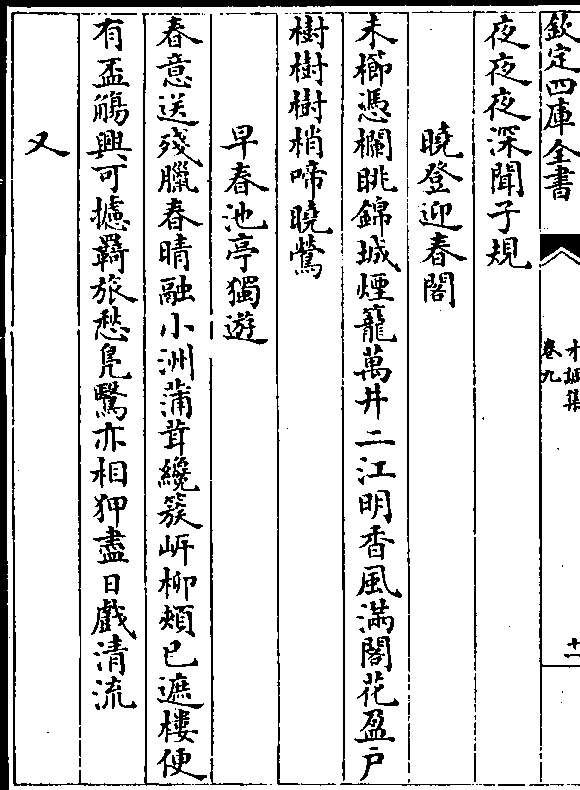 欽定四庫全書
才調集
卷九
十一
夜夜夜深聞子規
曉登迎春閣
未櫛憑欄眺錦城煙籠萬井二江明香風滿閣花盈戶
樹樹樹梢啼曉鶯
早春池亭獨遊
春意送殘臘春晴融小洲蒲茸纔簇岍柳頰已遮樓便
有盃觴興可攄羇旅愁鳬鷖亦相狎盡日戲清流
又